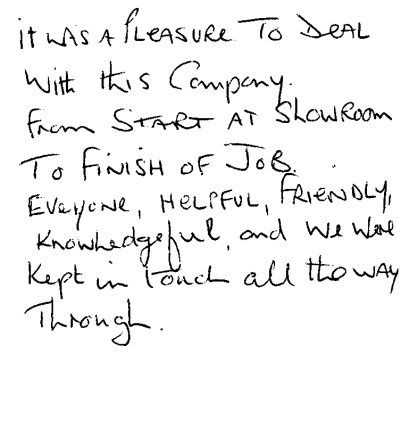 it WAS A PLEASURE TO DEAL
With this Company.
From START AT SHOWROOM
TO FINISH OF JOB.
EVERYONE, HELPFUL, FRIENDLY,
Knowledgeful, and We Were
Kept in Touch all the WAY
Through.